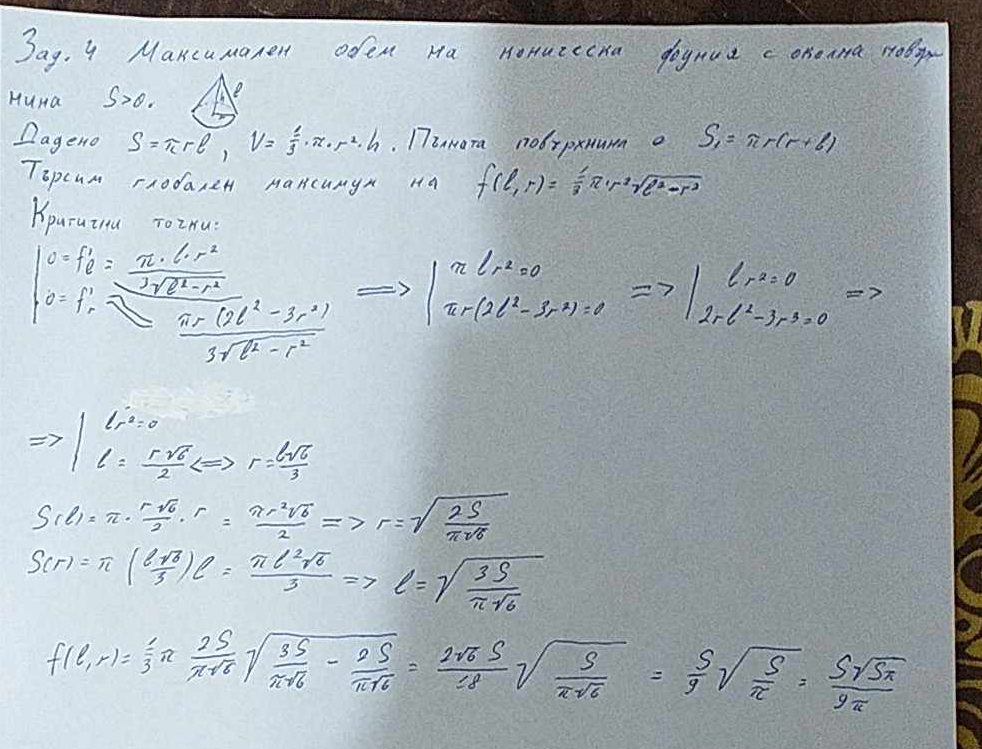 Зад. 4 Максимален обем на коническа фуния с околна повърх-
нина S>0. l
Дадено S = πrl, V = 1/3 · π · r² · h. Пълната повърхнина е S₁ = πr(r+l)
Търсим глобален максимум на f(l,r) = 1/3 π · r² √(l²-r²)
Критични точки:
| 0 = f'ₗ = (π · l · r²)/(3√(l²-r²)) => | πlr² = 0 => | lr² = 0 =>
| 0 = f'ᵣ = (πr(2l² - 3r²))/(3√(l² - r²)) | πr(2l² - 3r²) = 0 | 2rl² - 3r³ = 0
=> | lr² = 0
| l = (r√6)/2 <=> r = (l√6)/3
S(l) = π · (r√6)/2 · r = (πr²√6)/2 => r = √(2S/(π√6))
S(r) = π ((l√6)/3) l = (πl²√6)/3 => l = √(3S/(π√6))
f(l,r) = 1/3 π (2S)/(π√6) √(3S/(π√6) - 2S/(π√6)) = (2√6 S)/18 √(S/(π√6)) = S/9 √(S/π) = (S√(Sπ))/(9π)